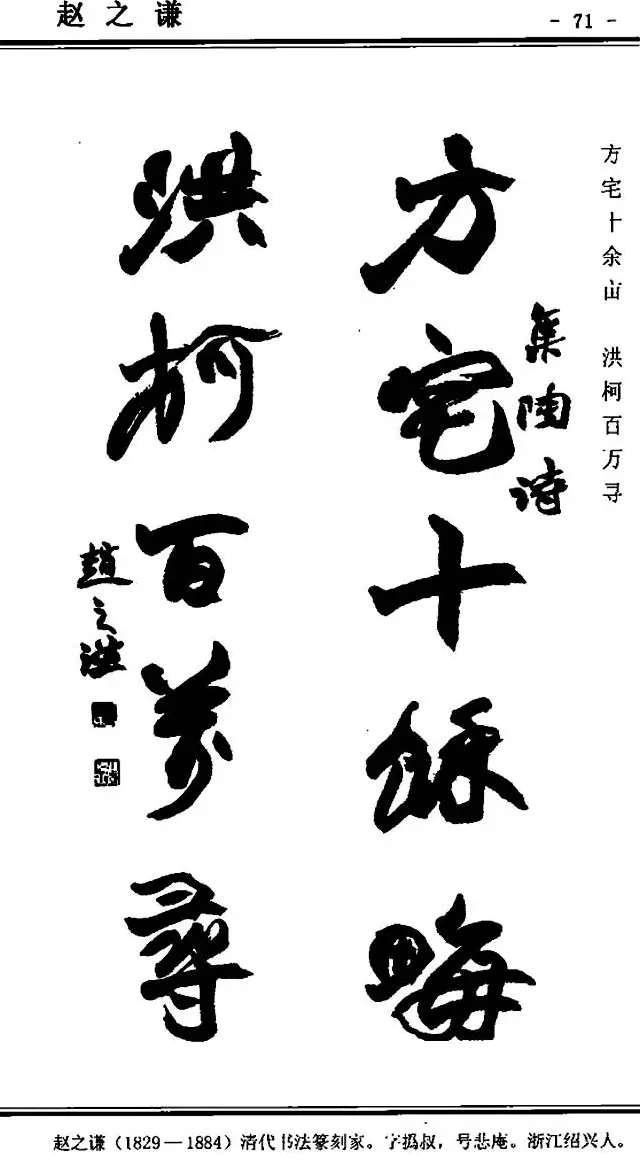 赵之谦
- 71 -
方宅十余亩 洪柯百万寻
集陶詩
方宅十餘畮
洪柯百萬尋
趙之謙
赵之谦（1829—1884）清代书法篆刻家。字㧑叔，号悲庵。浙江绍兴人。